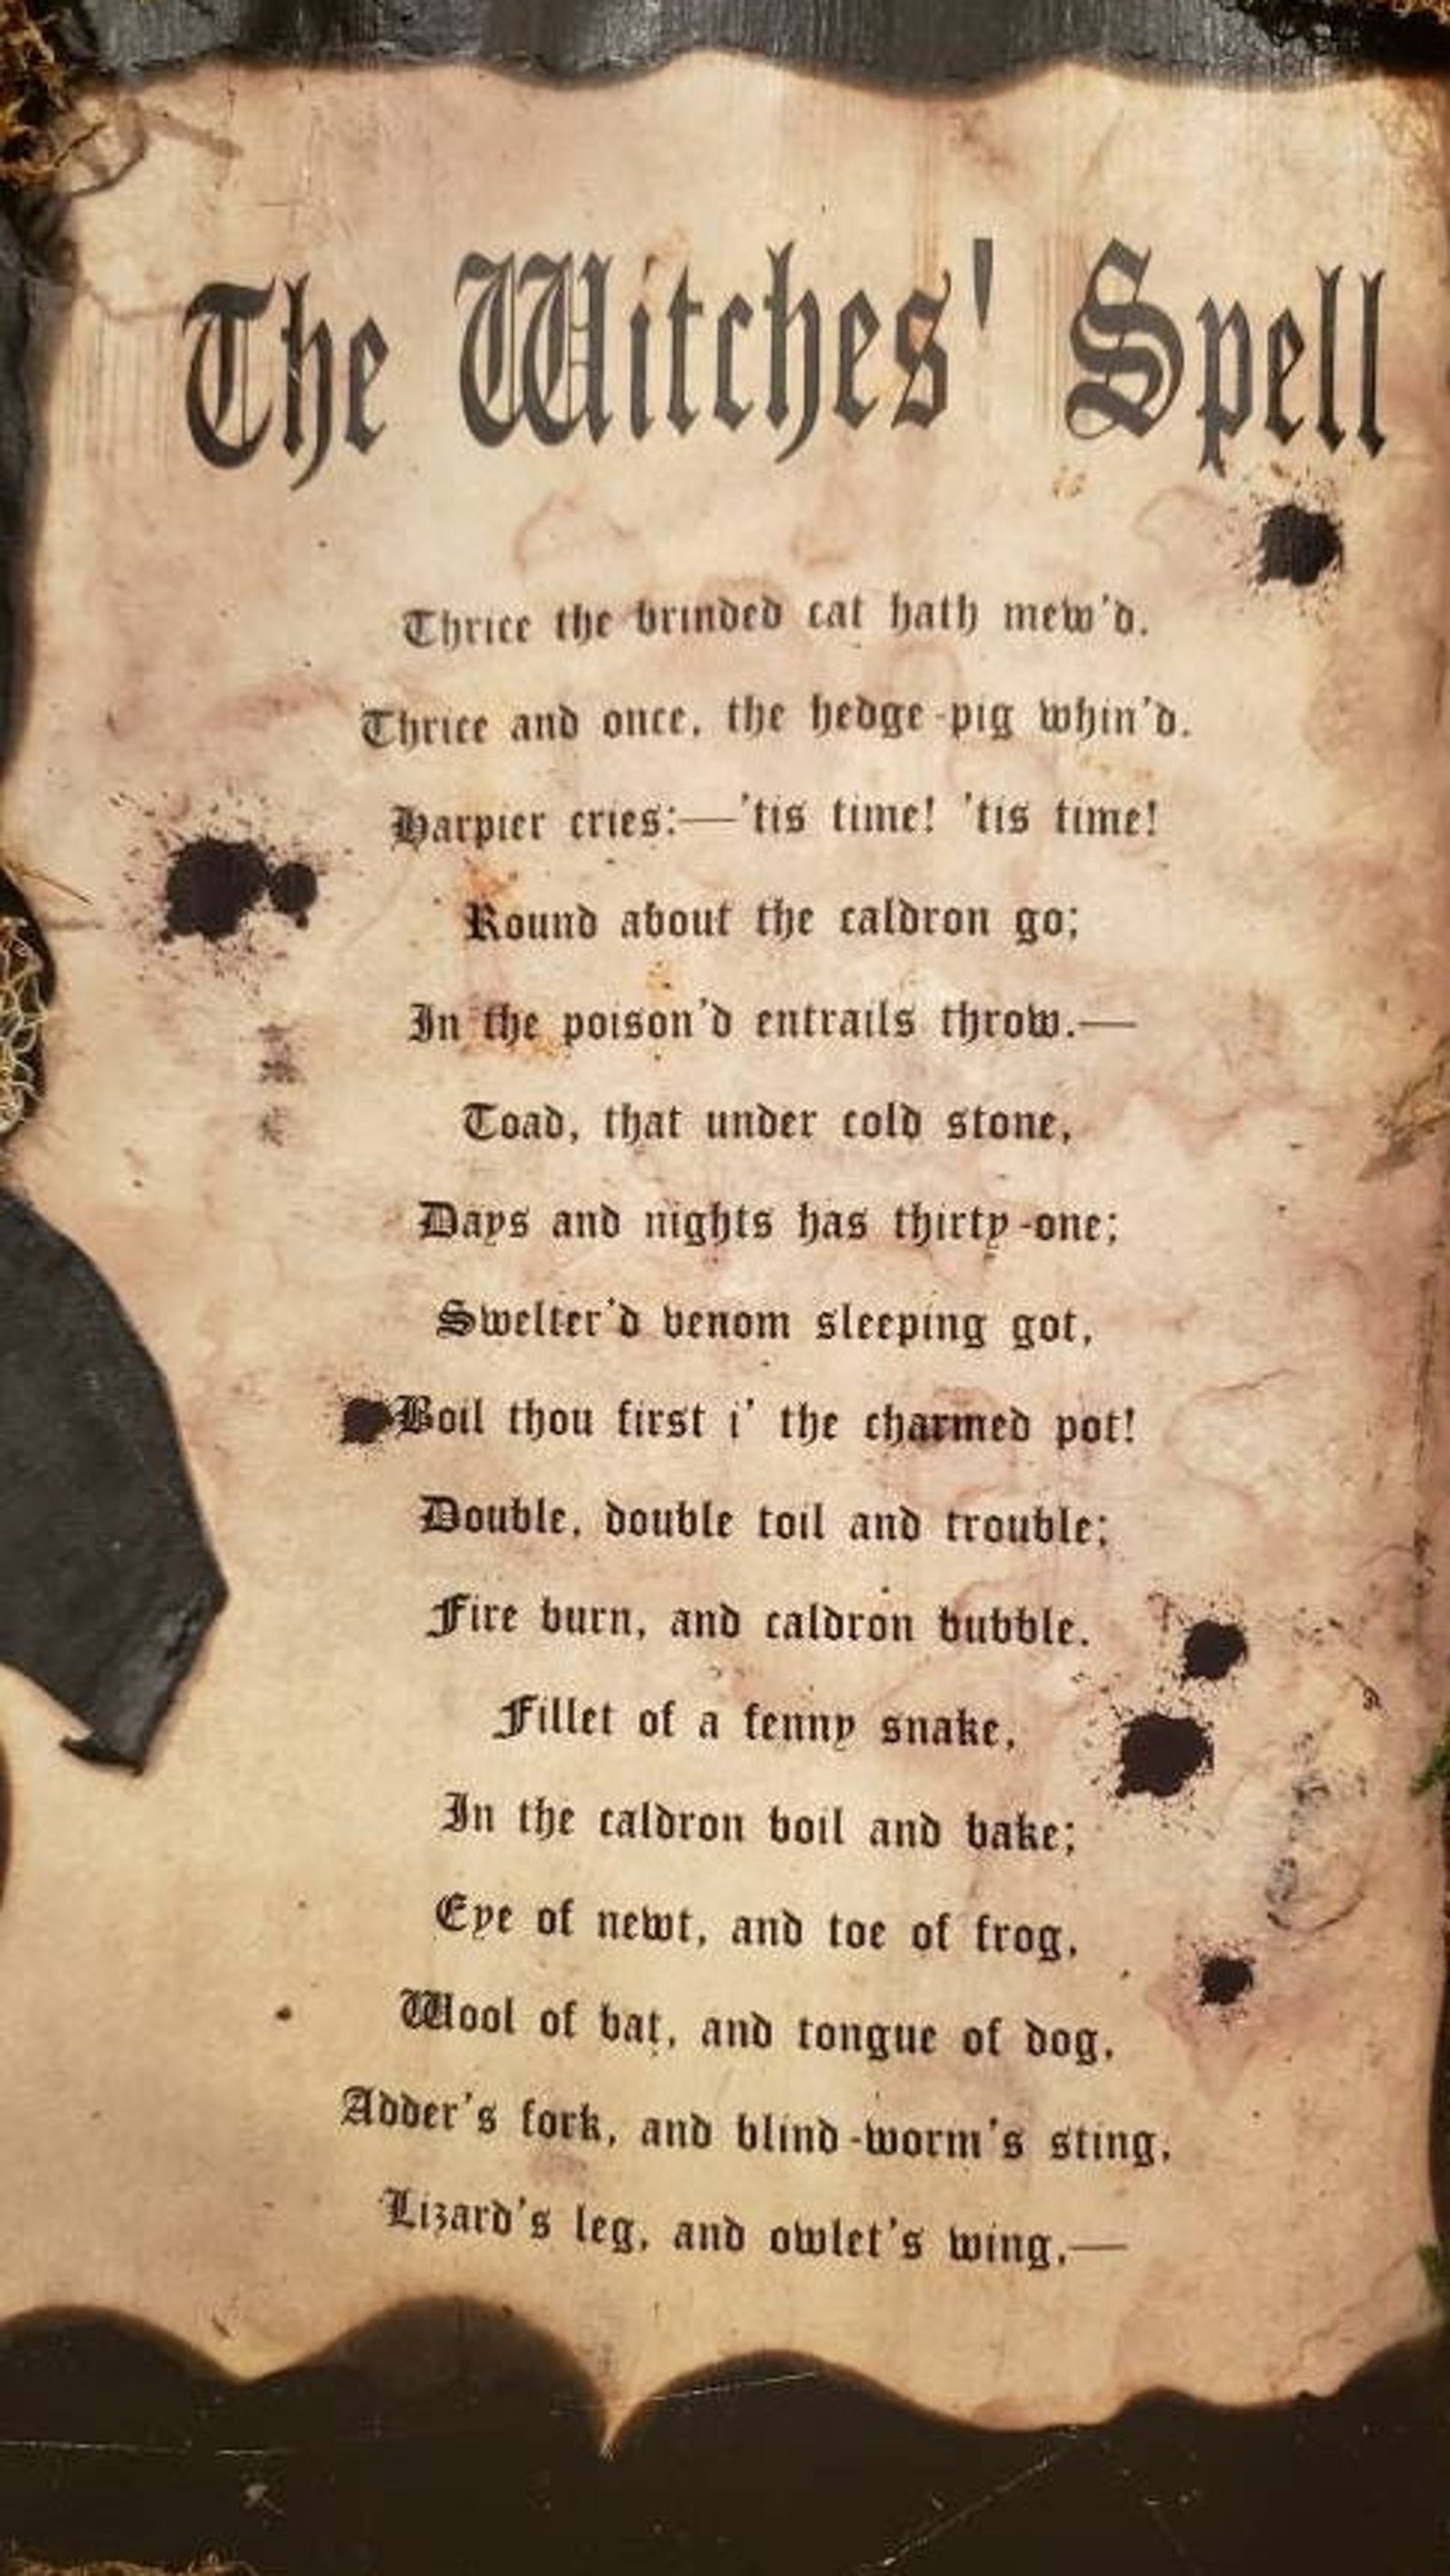 The Witches' Spell
Thrice the brinded cat hath mew'd.
Thrice and once, the hedge-pig whin'd.
Harpier cries:—'tis time! 'tis time!
Round about the caldron go;
In the poison'd entrails throw.—
Toad, that under cold stone,
Days and nights has thirty-one;
Swelter'd venom sleeping got,
Boil thou first i' the charmed pot!
Double, double toil and trouble;
Fire burn, and caldron bubble.
Fillet of a fenny snake,
In the caldron boil and bake;
Eye of newt, and toe of frog,
Wool of bat, and tongue of dog,
Adder's fork, and blind-worm's sting,
Lizard's leg, and owlet's wing,—